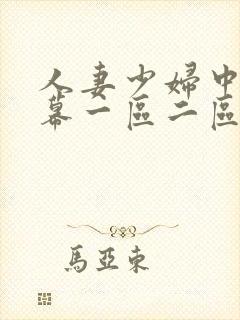 人妻少婦中
幕一區二區
馬亞東